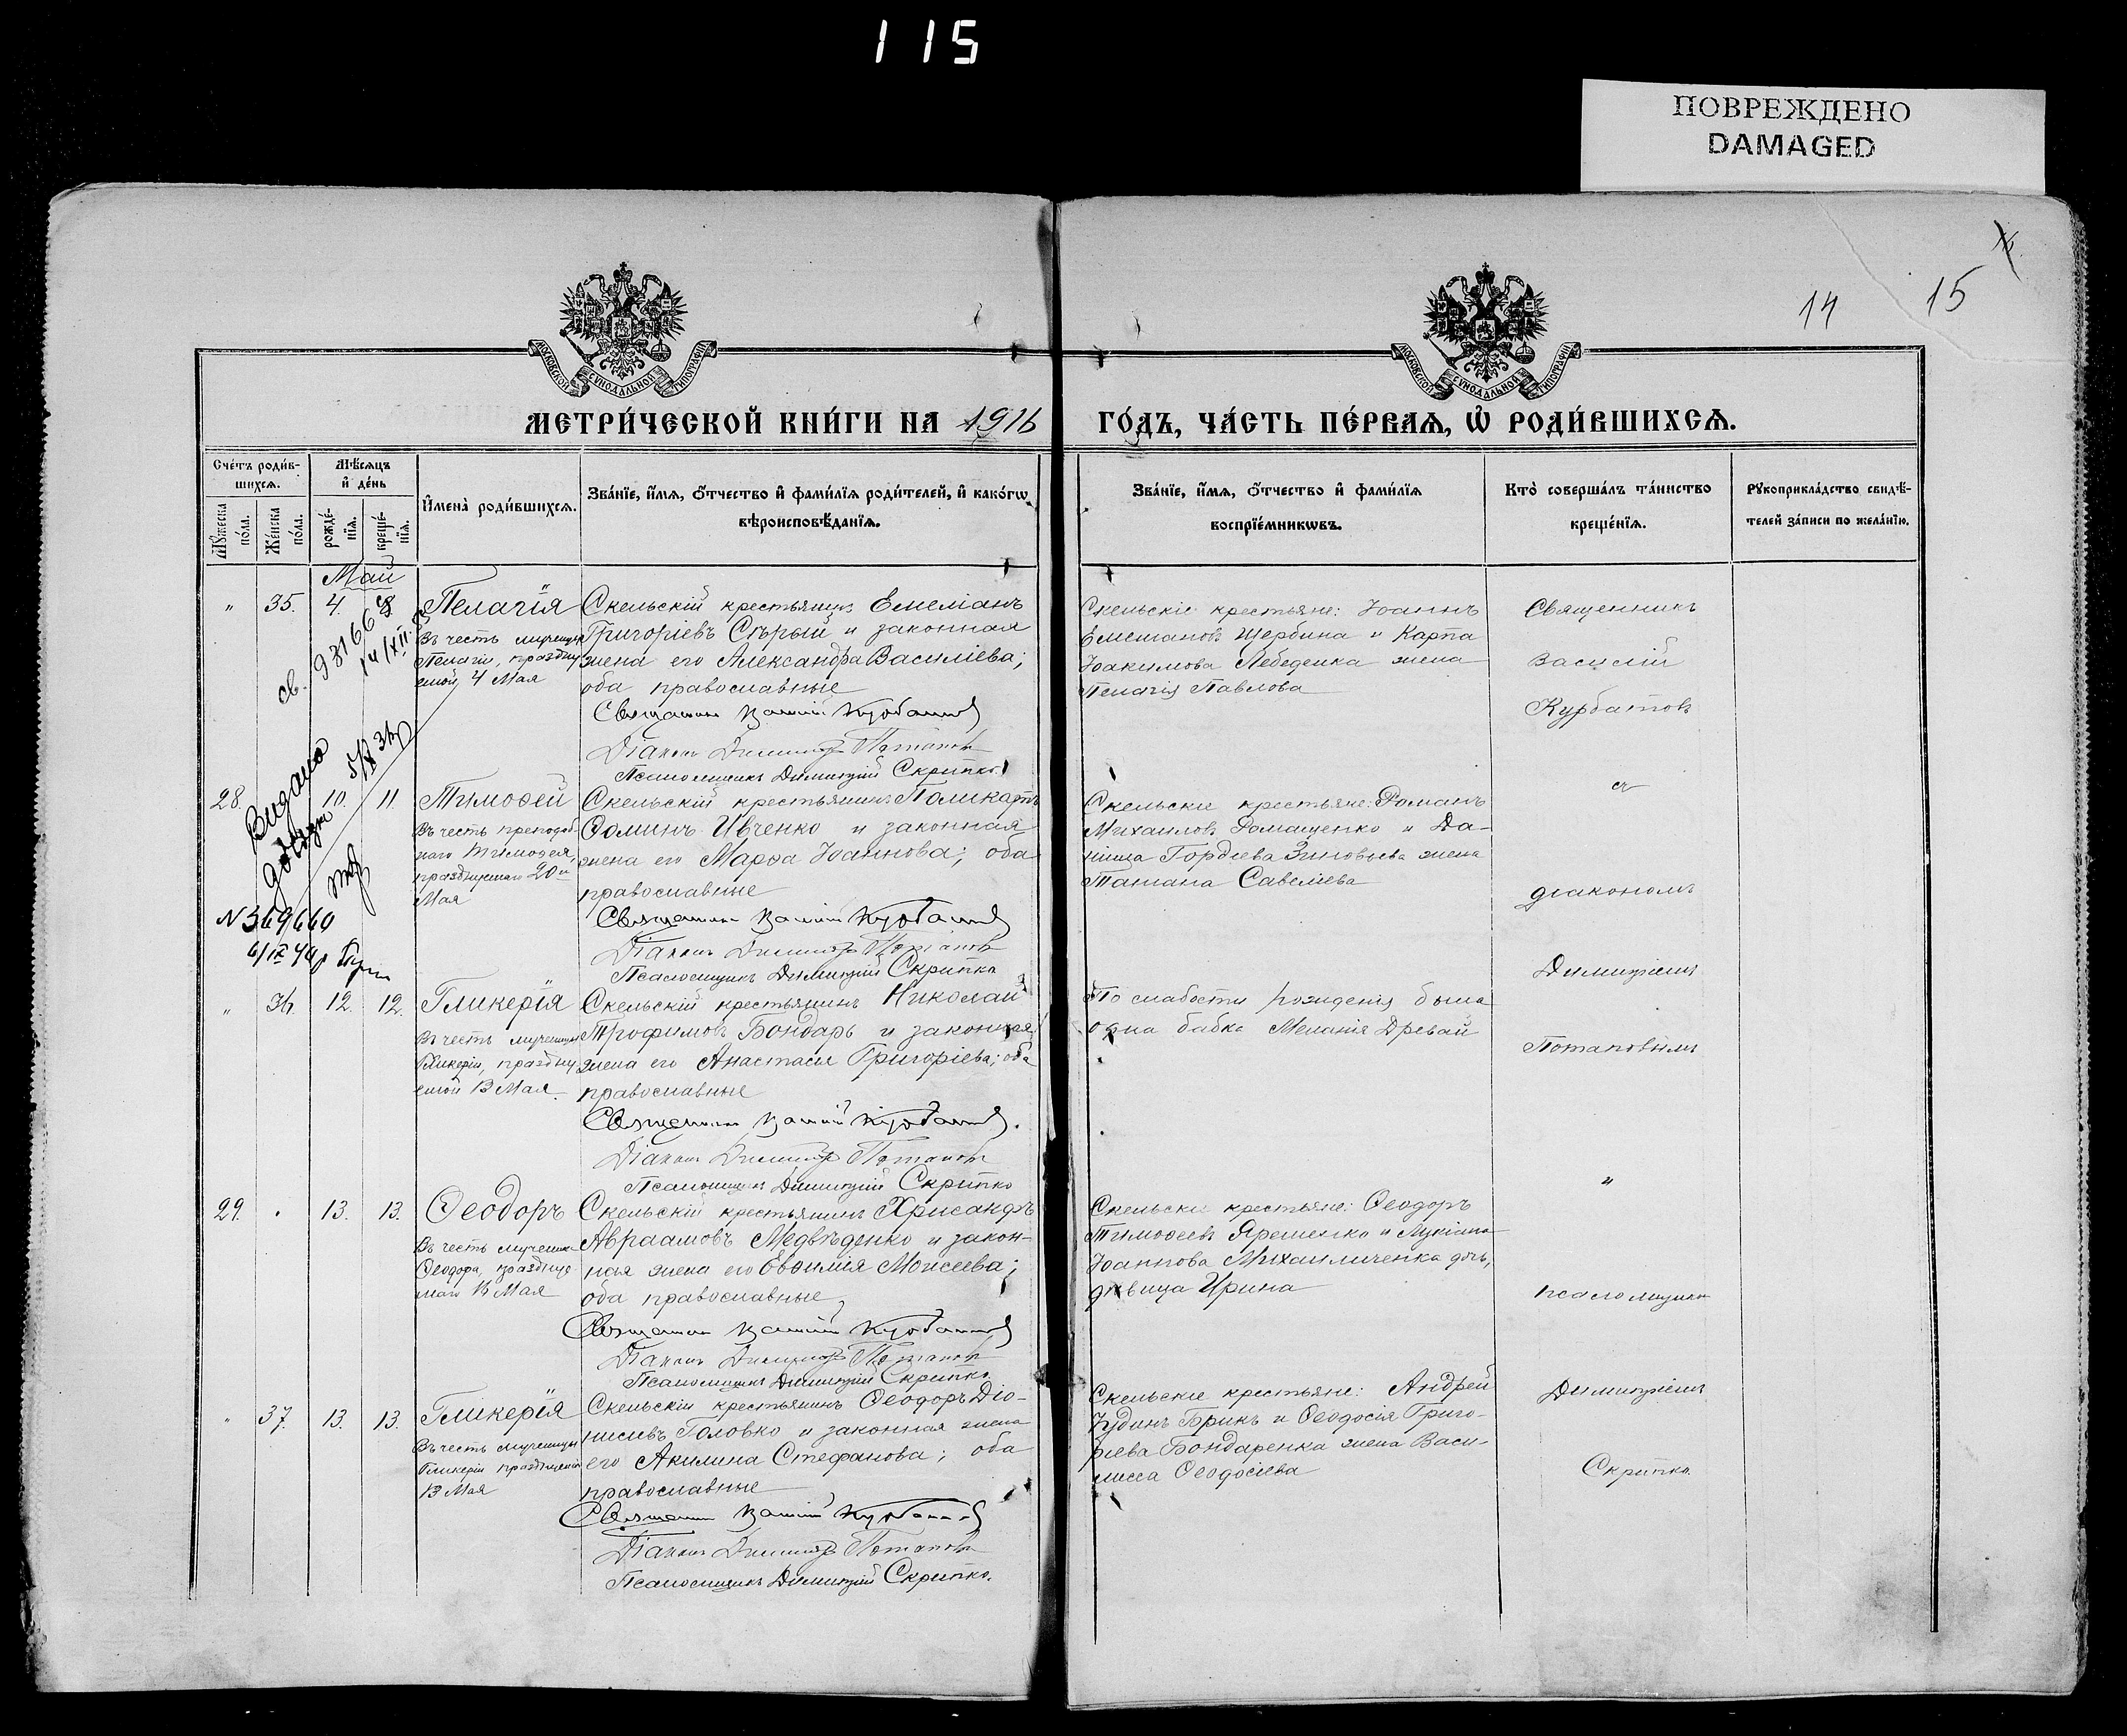 115
ПОВРЕЖДЕНО
DAMAGED
14
15
МОСКОВСКОЙ СѴНОДАЛЬНОЙ ТИПОГРАФІИ
МОСКОВСКОЙ СѴНОДАЛЬНОЙ ТИПОГРАФІИ
МЕТРИ́ЧЕСКОЙ КНИ́ГИ НА 1916 ГО́ДЪ, ЧА́СТЬ ПЕ́РВАѦ, Ѡ҆ РОДИ́ВШИХСѦ.
Сче́тъ роди́в-
шихсѧ.
Мѣ́сѧцъ
и҆ де́нь
Мꙋ́жеска
по́ла.
Же́нска
по́ла.
рожде́-
нїѧ.
креще́-
нїѧ.
И҆мена̀ роди́вшихсѧ.
Зва́нїе, и҆́мѧ, ѻ҆́тчество и҆ фами́лїѧ роди́телей, и҆ како́гѡ
вѣроисповѣ́данїѧ.
Зва́нїе, и҆́мѧ, ѻ҆́тчество и҆ фами́лїѧ
воспрїе́мникѡвъ.
Кто̀ соверша́лъ та́инство
креще́нїѧ.
Рꙋкоприкла́дство свидѣ́-
телей за́писи по жела́нїю.
Май
" 35. 4. 8 Пелагія
Въ честь мученицы
Пелагіи, праздну
емой 4 Мая
Скельскій крестьянинъ Емеліанъ
Григоріевъ Сѣрый и законная
жена его Александра Василіева;
оба православные
Священникъ Василій Курбатовъ
Діаконъ Димитрій Потаповъ
Псаломщикъ Димитрій Скрипко
Скельскіе крестьяне: Іоаннъ
Емеліановъ Щербина и Карпа
Іоакимова Лебеденка жена
Пелагія Павлова
Священникъ
Василій
Курбатовъ
св. 931666
14/XII
Видано
довідку 5/IX 36р
N 369660
6/IX 40р
28. 10. 11. Тимоѳей
Въ честь преподоб
наго Тимоѳея,
празднуемаго 20го
Мая
Скельскій крестьянинъ Поликарпъ
Ѳоминъ Ивченко и законная
жена его Марѳа Іоаннова; оба
православные
Священникъ Василій Курбатовъ
Діаконъ Димитрій Потаповъ
Псаломщикъ Димитрій Скрипко
Скельскіе крестьяне: Романъ
Михаиловъ Ромащенко и Да-
ніила Гордіева Зиновьева жена
Татіана Савеліева
съ
діакономъ
Димитріемъ
Потаповымъ
" 36. 12. 12. Гликерія
Въ честь мученицы
Гликеріи, праздну
емой 13 Мая
Скельскій крестьянинъ Николай
Трофимовъ Бондарь и законная
жена его Анастасія Григоріева; оба
православные
Священникъ Василій Курбатовъ.
Діаконъ Димитрій Потаповъ
Псаломщикъ Димитрій Скрипко
По слабости рожденія была
одна бабка Меланія Древай
29. " 13. 13. Ѳеодоръ
Въ честь мученика
Ѳеодора, праздн
маго 16 Мая
Скельскій крестьянинъ Хрисанѳъ
Авраамовъ Медвѣденко и закон-
ная жена его Евѳимія Моисеева;
оба православные
Священникъ Василій Курбатовъ
Діаконъ Димитрій Потаповъ
Псаломщикъ Димитрій Скрипко
Скельскіе крестьяне: Ѳеодоръ
Тимоѳеевъ Яременко и Лукіана
Іоаннова Михаиличенка дочь,
дѣвица Ирина
"
псаломщикъ
Димитріемъ
Скрипко.
" 37. 13. 13. Гликерія
Въ честь мученицы
Гликеріи празднуемой
13 Мая
Скельскій крестьянинъ Ѳеодоръ Діо-
нисіевъ Головко и законная жена
его Акилина Стефанова; оба
православные
Священникъ Василій Курбатовъ
Діаконъ Димитрій Потаповъ
Псаломщикъ Димитрій Скрипко.
Скельскіе крестьяне: Андрей
Іудинъ Брикъ и Ѳеодосія Григо-
ріева Бондаренка жена Васи-
лисса Ѳеодосіева